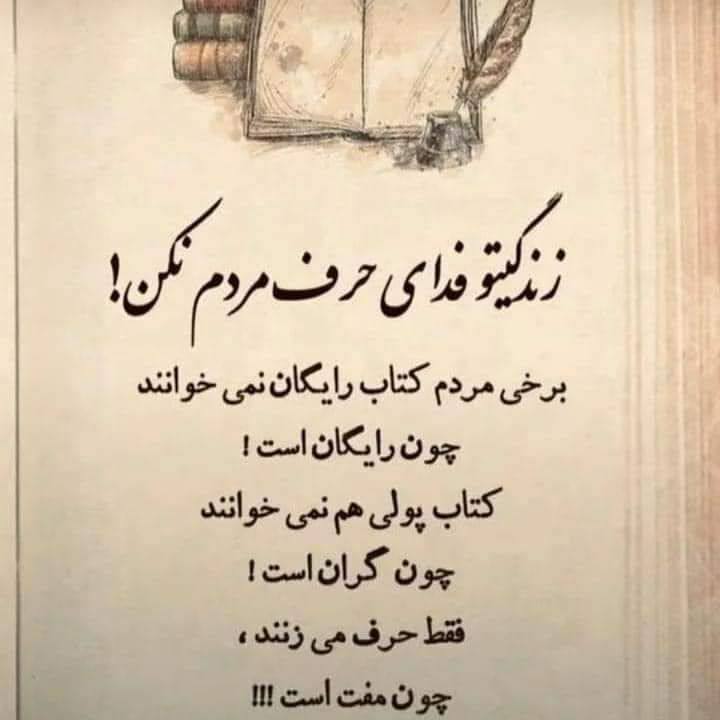 زندگیتو فدای حرف مردم نکن!
برخی مردم کتاب رایگان نمی خوانند
چون رایگان است !
کتاب پولی هم نمی خوانند
چون گران است !
فقط حرف می زنند ،
چون مفت است !!!